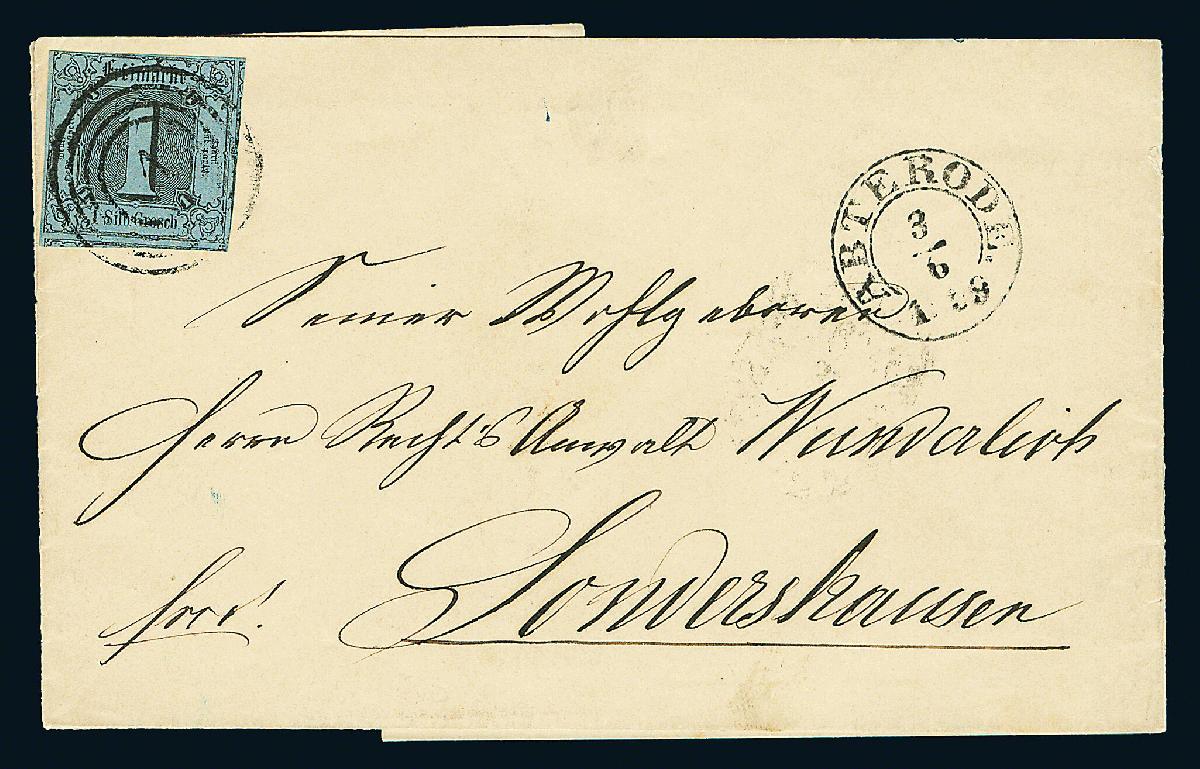 Freimarke
1
1 Silb. Grosch
ABTERODE.
3
/
6
1 59
Seiner Wohlgeboren
Herrn Rechts Anwalt Wunderlich
fro!
Sondershausen